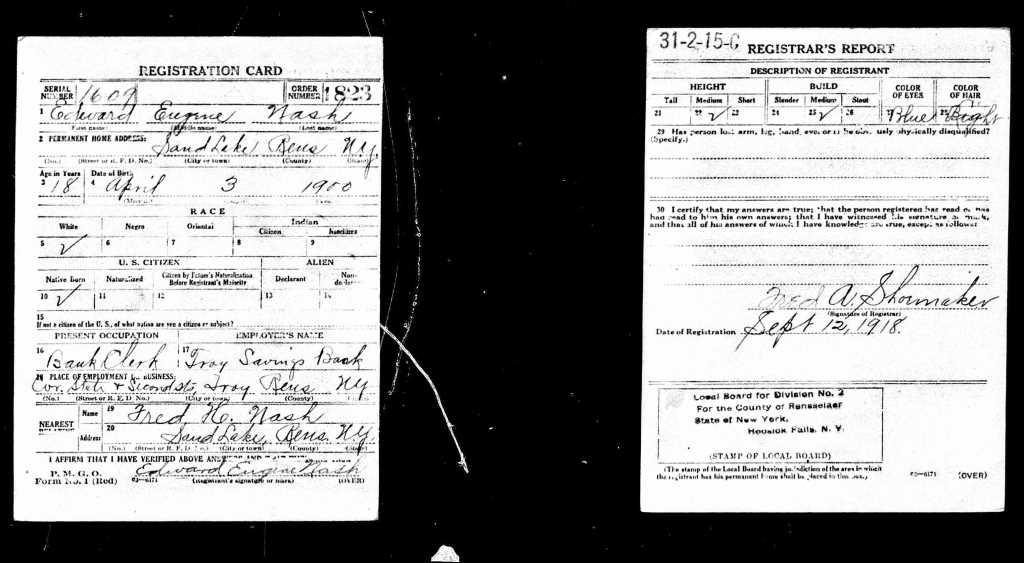 REGISTRATION CARD
SERIAL NUMBER 1609 ORDER NUMBER 1823
1 Edward Eugene Nash
(First name) (Middle name) (Last name)
2 PERMANENT HOME ADDRESS:
Sand Lake Rens N.Y.
(No.) (Street or R. F. D. No.) (City or town) (County) (State)
Age in Years Date of Birth
3 18 4 April 3 1900
RACE
White Negro Oriental Indian
Citizen
5 ✓ 6 7 8 9
U. S. CITIZEN ALIEN
Native Born Naturalized Citizen by Father's Naturalization Before Registrant's Majority Declarant Non-
10 ✓ 11 12 13 14
15
If not a citizen of the U. S., of what nation are you a citizen or subject?
PRESENT OCCUPATION EMPLOYER'S NAME
16 Bank Clerk 17 Troy Savings Bank
18 PLACE OF EMPLOYMENT OR BUSINESS:
Cor. State & Second Sts, Troy Rens NY
(No.) (Street or R. F. D. No.) (City or town) (County) (State)
NEAREST Name 19 Fred H. Nash
Address 20 Sand Lake, Rens. N.Y.
(No.) (Street or R. F. D. No.) (City or town) (County) (State)
I AFFIRM THAT I HAVE VERIFIED ABOVE ANSWERS AND
P. M. G. O. Edward Eugene Nash
Form No. 1 (Red) 03—6171 (Registrant's signature or mark) (OVER)
31-2-15-C REGISTRAR'S REPORT
DESCRIPTION OF REGISTRANT
HEIGHT BUILD COLOR OF EYES COLOR OF HAIR
Tall Medium Short Slender Medium Stout
21 22 ✓ 23 24 25 ✓ 26 27 Blue 28
29 Has person lost arm, leg, hand, eye, or is he obviously physically disqualified?
(Specify.)
30 I certify that my answers are true; that the person registered has read or has
had read to him his own answers; that I have witnessed his signature or mark,
and that all of his answers of which I have knowledge are true, except as follows:
Fred A. Shoumaker
(Signature of Registrar)
Date of Registration Sept 12, 1918
Local Board for Division No. 2
For the County of Rensselaer
State of New York,
Hoosick Falls, N. Y.
(STAMP OF LOCAL BOARD)
(The stamp of the Local Board having jurisdiction of the area in which
the registrant has his permanent home shall be placed in this box.)
03—6171 (OVER)